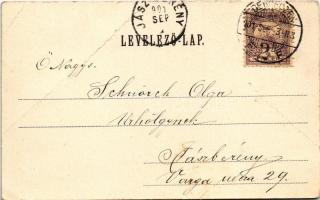 JÁSZ
901
SEP
LEVELEZŐ-LAP.
Ő Nagys.
Schnorch Olga
Urhölgynek
Jászberény
Varga utca 29.